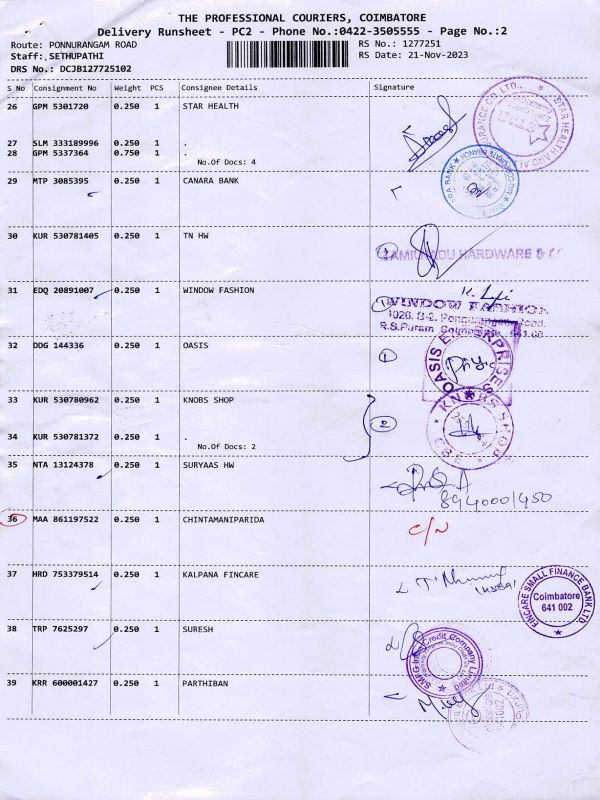 THE PROFESSIONAL COURIERS, COIMBATORE
Delivery Runsheet - PC2 - Phone No.:0422-3505555 - Page No.:2
Route: PONNURANGAM ROAD RS No.: 1277251
Staff: SETHUPATHI RS Date: 21-Nov-2023
DRS No.: DCJB127725102
S No Consignment No Weight PCS Consignee Details Signature
26 GPM 5301720 0.250 1 STAR HEALTH
27 SLM 333189996 0.250 1 .
28 GPM 5337364 0.750 1 .
No.Of Docs: 4
29 MTP 3085395 0.250 1 CANARA BANK
30 KUR 530781405 0.250 1 TN HW
1 TAMILNADU HARDWARE &
31 EDQ 20891007 0.250 1 WINDOW FASHION
1 WINDOW FASHION
R.S.Puram
32 DDG 144336 0.250 1 OASIS
1 OASIS ENTERPRISES
33 KUR 530780962 0.250 1 KNOBS SHOP
KNOBS SHOP
CBE
2
34 KUR 530781372 0.250 1 .
No.Of Docs: 2
35 NTA 13124378 0.250 1 SURYAAS HW
8940001450
36 MAA 861197522 0.250 1 CHINTAMANIPARIDA
C/N
37 HRD 753379514 0.250 1 KALPANA FINCARE
FINCARE SMALL FINANCE BANK LTD.
Coimbatore
641 002
38 TRP 7625297 0.250 1 SURESH
Credit Company Limited
39 KRR 600001427 0.250 1 PARTHIBAN